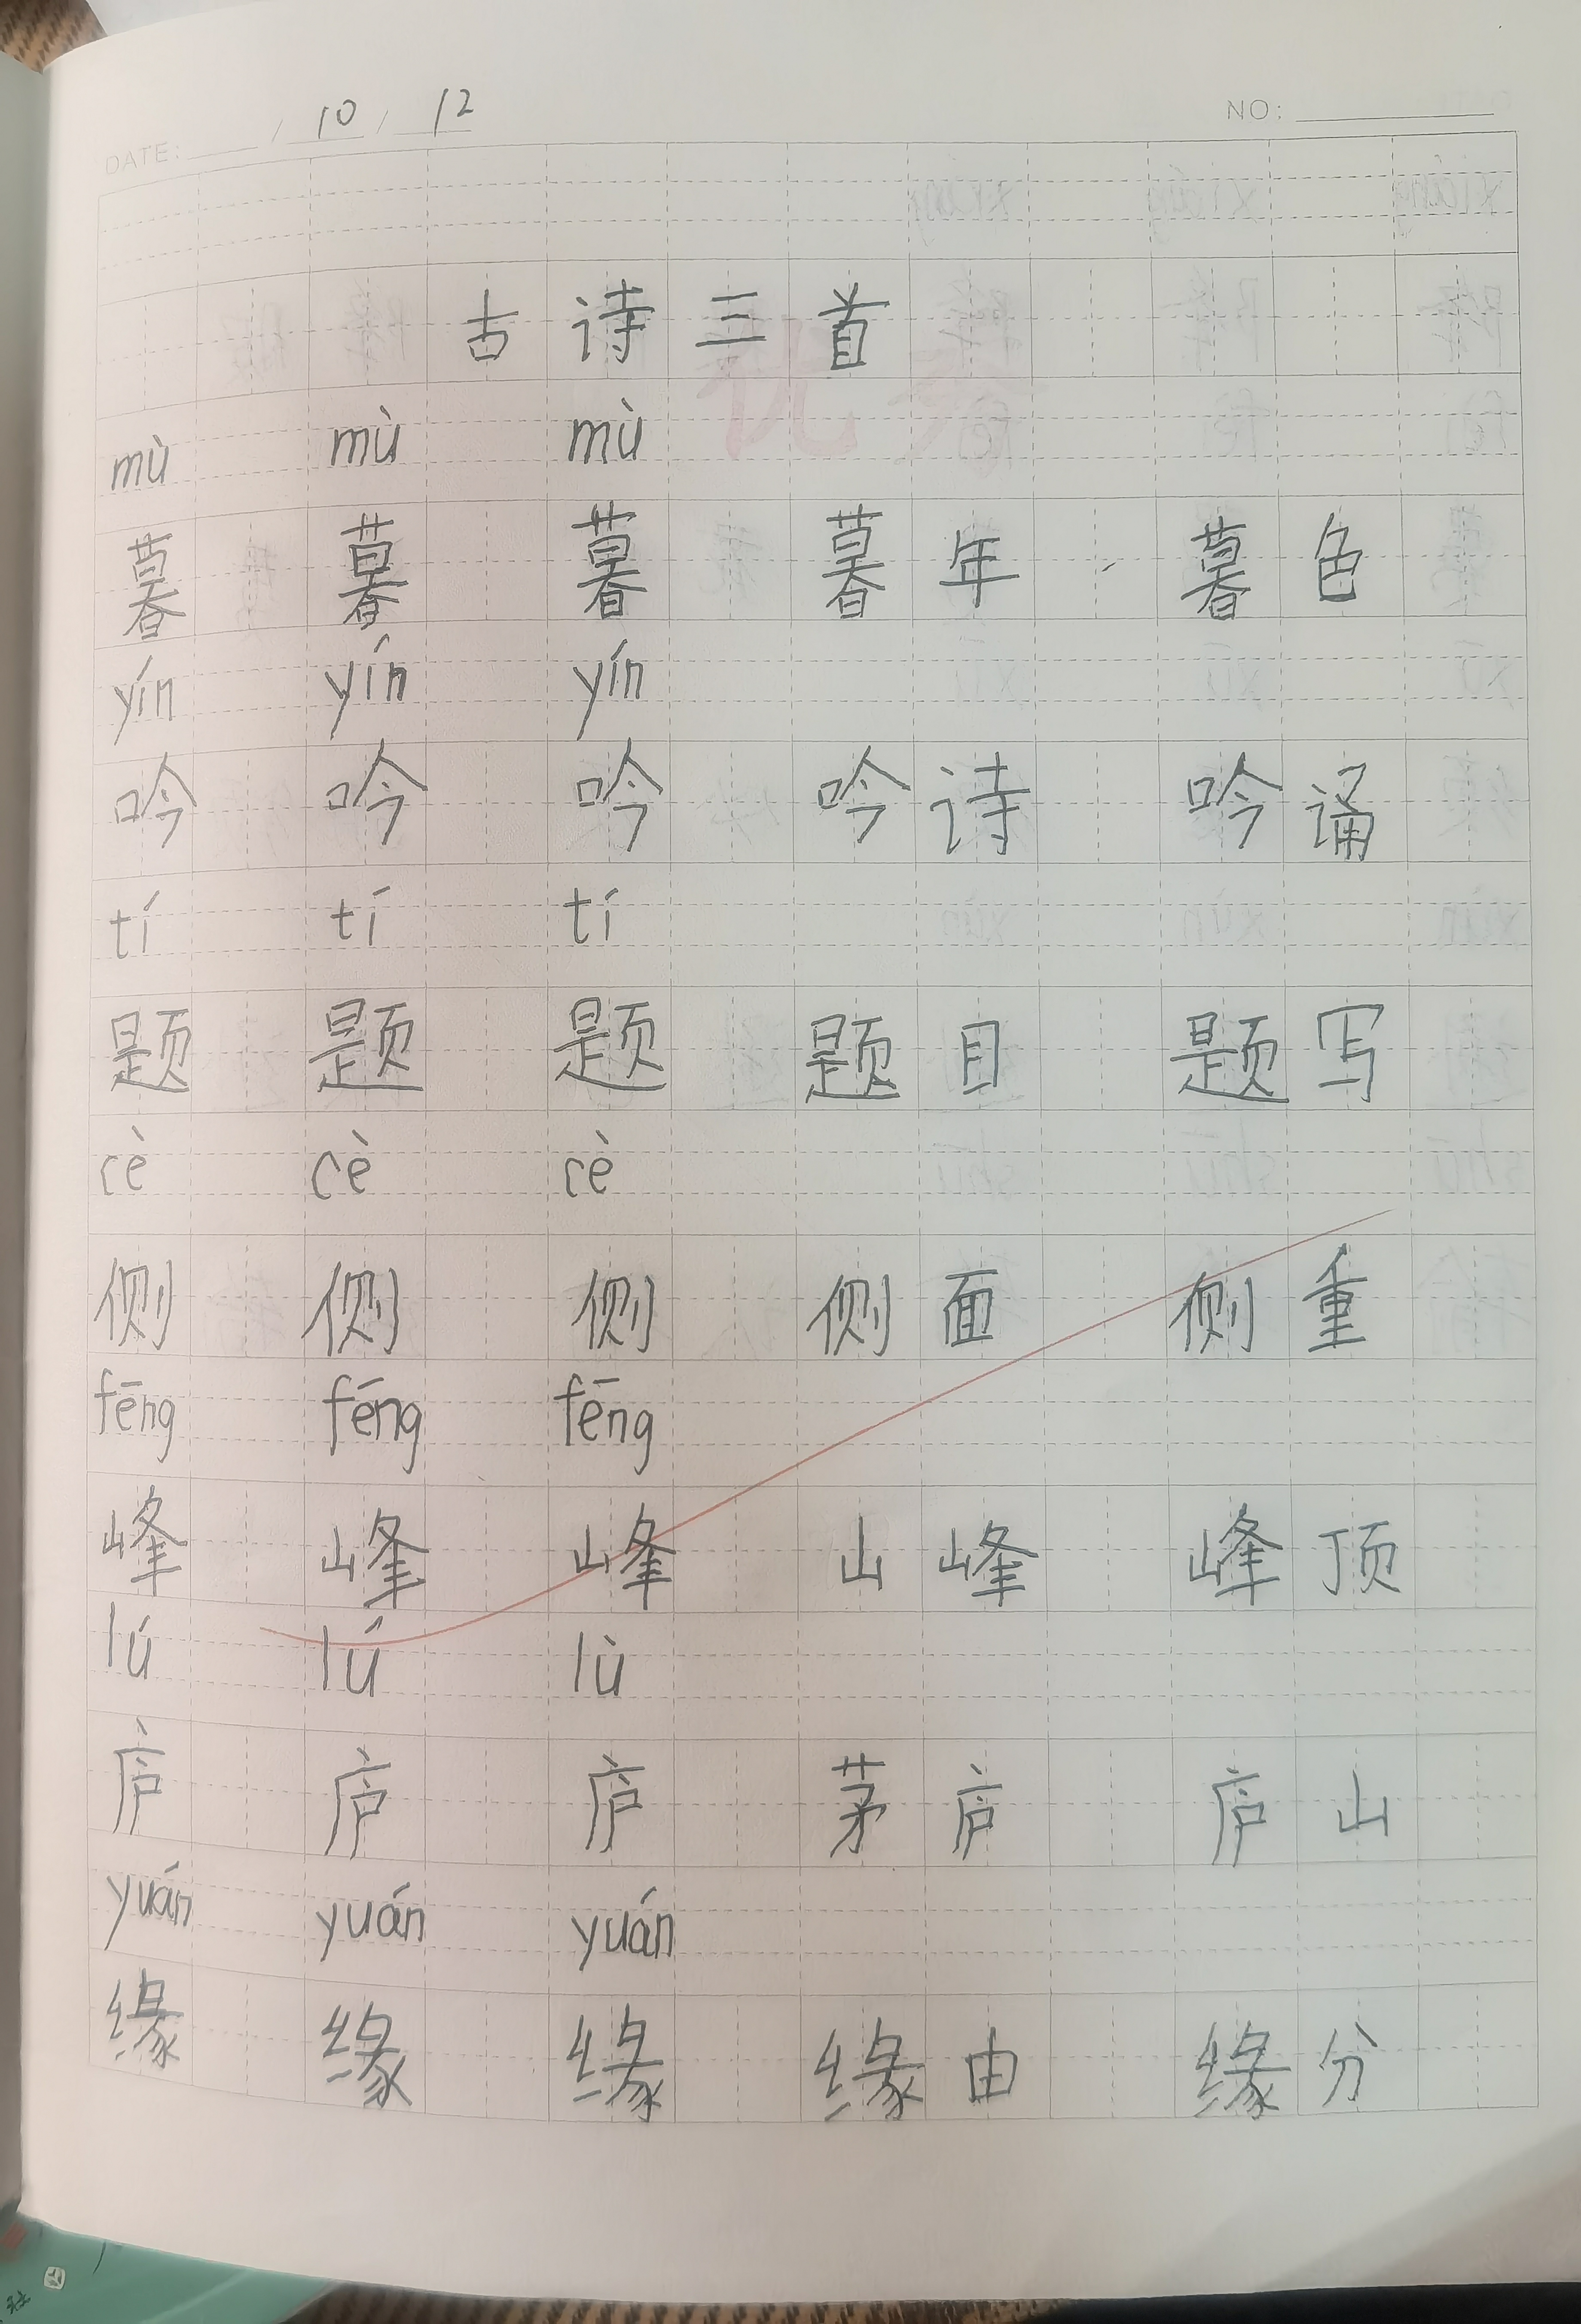 DATE: / 10 / 12 NO:
古诗三首
mù mù mù
暮 暮 暮 暮年 暮色
yín yín yín
吟 吟 吟 吟诗 吟诵
tí tí tí
题 题 题 题目 题写
cè cè cè
侧 侧 侧 侧面 侧重
fēng fēng fēng
峰 峰 峰 山峰 峰顶
lú lú lù
庐 庐 庐 茅庐 庐山
yuán yuán yuán
缘 缘 缘 缘由 缘分